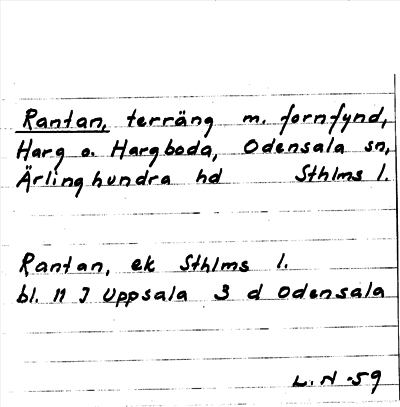 Rantan, terräng m. fornfynd,
Harg o. Hargboda, Odensala sn,
Ärlinghundra hd Sthlms l.
Rantan, ek Sthlms l.
bl. 11 I Uppsala 3 d Odensala
L. N -59